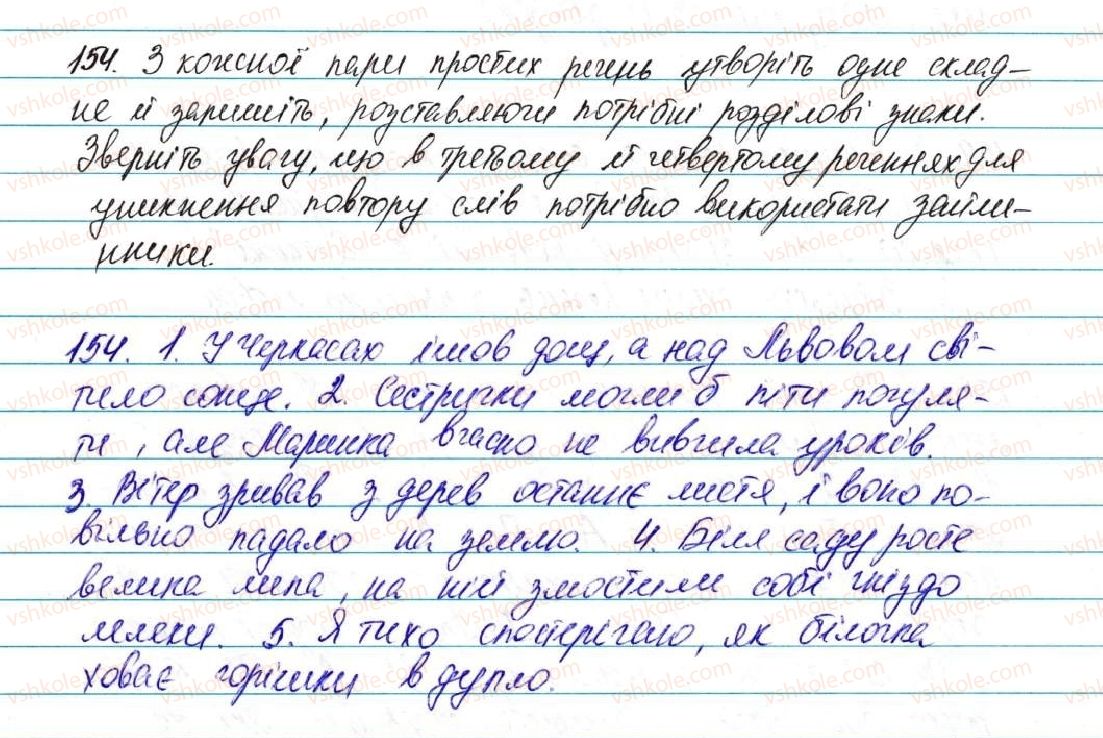 154. З кожної пари простих речень утворіть одне склад-
не й запишіть, розставляючи потрібні розділові знаки.
Зверніть увагу, що в третьому й четвертому реченнях для
уникнення повтору слів потрібно використати займе-
нники.
154. 1. У Черкасах ішов дощ, а над Львовом сві-
тило сонце. 2. Сестрички могли б піти погуля-
ти, але Маринка вчасно не вивчила уроків.
3 Вітер зривав з дерев останнє листя, і воно по-
вільно падало на землю. 4. Біля саду росте
велика липа, на ній змостили собі гніздо
лелеки. 5. Я тихо спостерігаю, як білочка
ховає горішки в дупло.